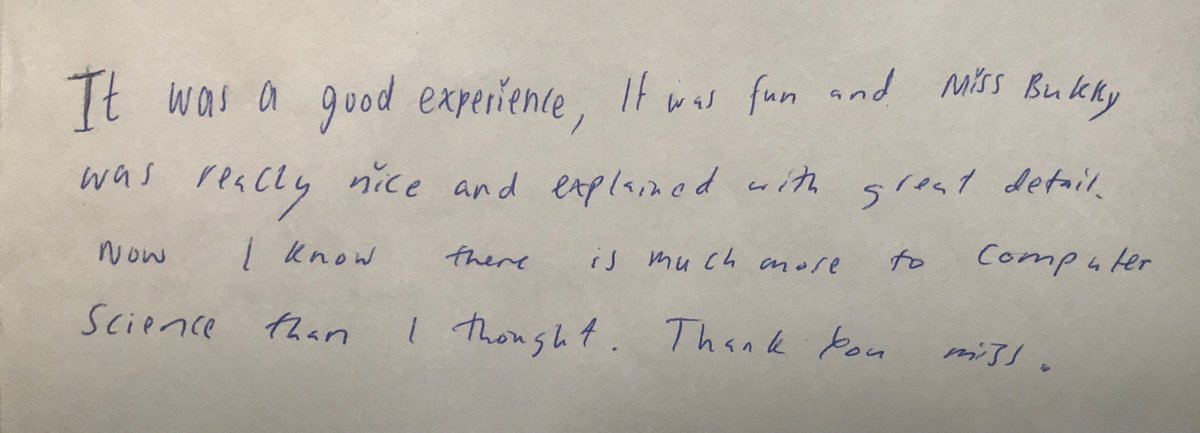 It was a good experience, It was fun and Miss Bukky
was really nice and explained with great detail.
Now I know there is much more to Computer
Science than I thought. Thank You miss.